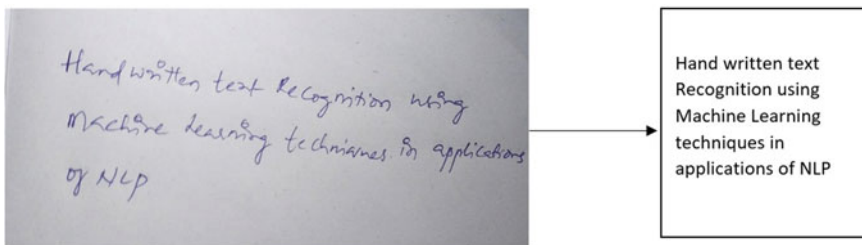 Handwritten text Recognition using
Machine Learning techniques in applications
of NLP
Hand written text
Recognition using
Machine Learning
techniques in
applications of NLP